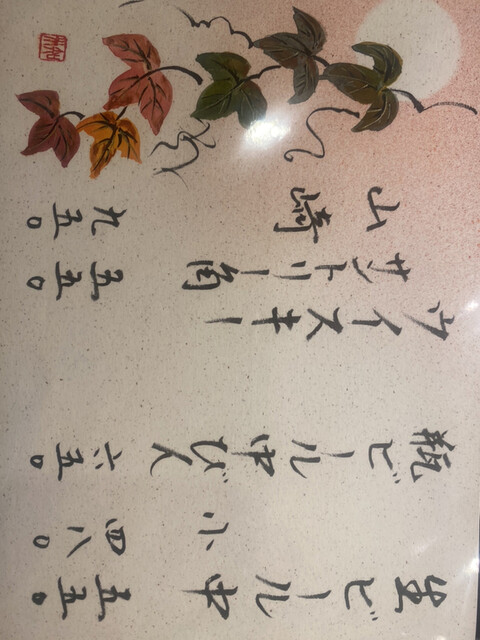 生ビール中 五五〇
小 四八〇
瓶ビール中びん 六五〇
ウイスキー
サントリー角 五五〇
山崎 九五〇